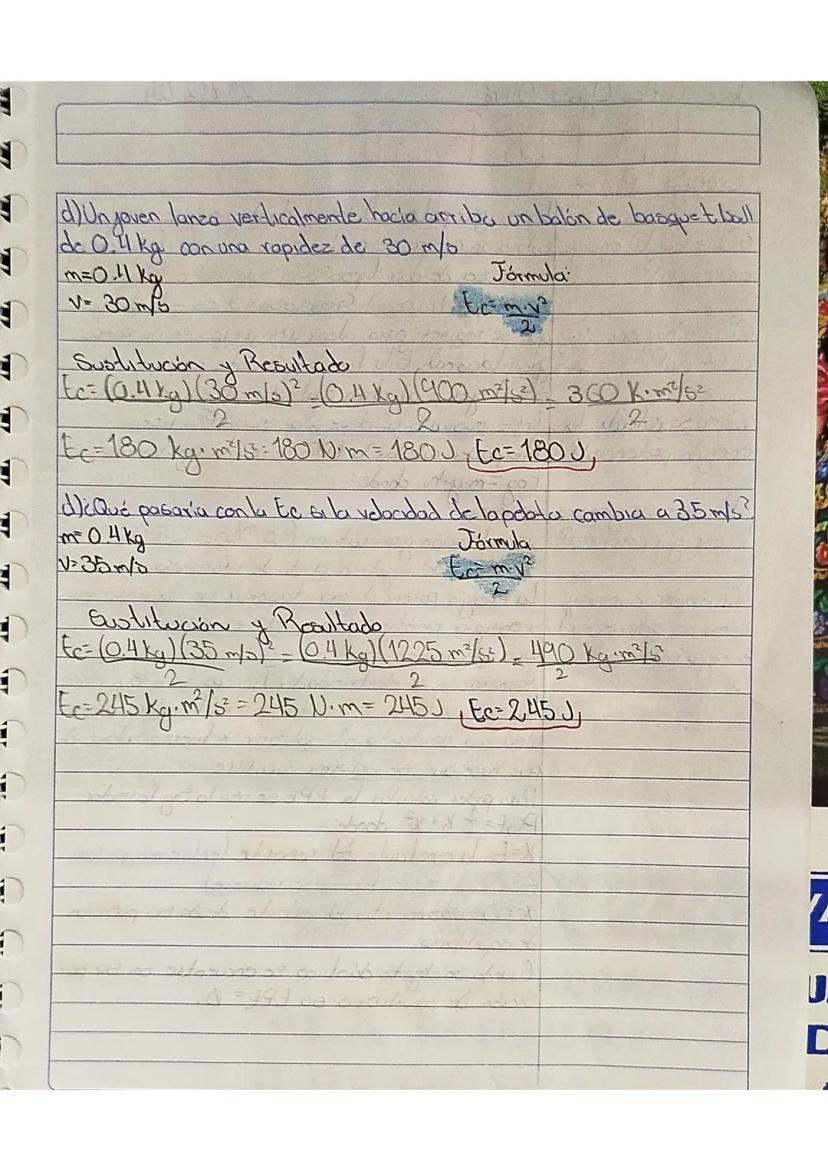 d) Un joven lanza verticalmente hacia arriba un balón de basquet ball
de 0.4 kg con una rapidez de 30 m/s
m=0.4 kg Fórmula:
v= 30 m/s Ec= m·v²/2
Sustitución y Resultado
Ec= (0.4 kg)(30 m/s)²/2 = (0.4 kg)(900 m²/s²)/2 = 360 K·m²/s²/2
Ec= 180 kg·m²/s² = 180 N·m = 180 J Ec= 180 J
d) ¿Qué pasaría con la Ec si la velocidad de la pelota cambia a 35 m/s?
m= 0.4 kg Fórmula
v= 35 m/s Ec= m·v²/2
Sustitución y Resultado
Ec= (0.4 kg)(35 m/s)²/2 = (0.4 kg)(1225 m²/s²)/2 = 490 kg·m²/s²/2
Ec= 245 kg·m²/s² = 245 N·m = 245 J Ec= 245 J